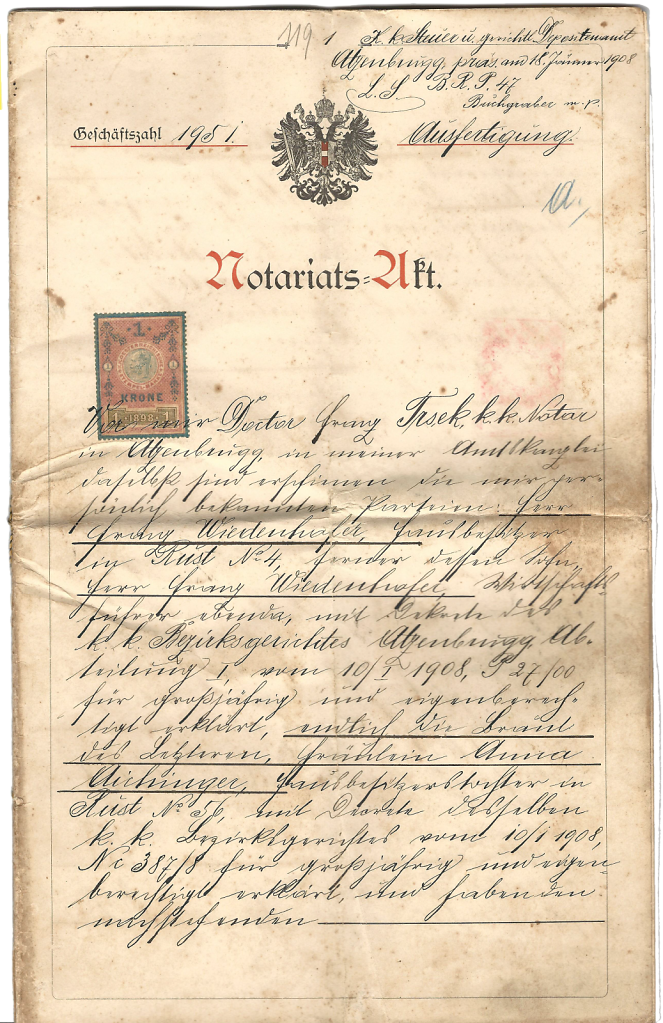 119 1 K. k. Steuer u. gerichtl. Depositenamt
Atzenbrugg, präs. am 18. Jänner 1908
L. S. B. R. P. 47
Buchgraber m. p.
Geschäftszahl 1951.
Ausfertigung.
a,
Notariats-Akt.
1
1 1
KRONE
1 1898 1
Vor mir Doctor Franz Trsek, k. k. Notar
in Atzenbrugg in meiner Amtskanzlei
daselbst sind erschienen die mir per-
sönlich bekannten Parteien: Herr
Franz Wiedenhofer, Hausbesitzer
in Rust No 4, ferner dessen Sohn
Herr Franz Wiedenhofer, Wirtschafts-
führer ebenda, mit Dekrete des
k. k. Bezirksgerichtes Atzenbrugg Ab-
teilung I, vom 10/I 1908, P 27/00
für großjährig und eigenberech-
tigt erklärt, endlich die Braut
des Letzteren, Fräulein Anna
Aichinger, Hausbesitzerstochter in
Rust No 56, mit Decrete desselben
k. k. Bezirksgerichtes vom 10/I 1908,
Nc 387/8 für großjährig und eigen-
berechtigt erklärt, und haben den
nachstehenden